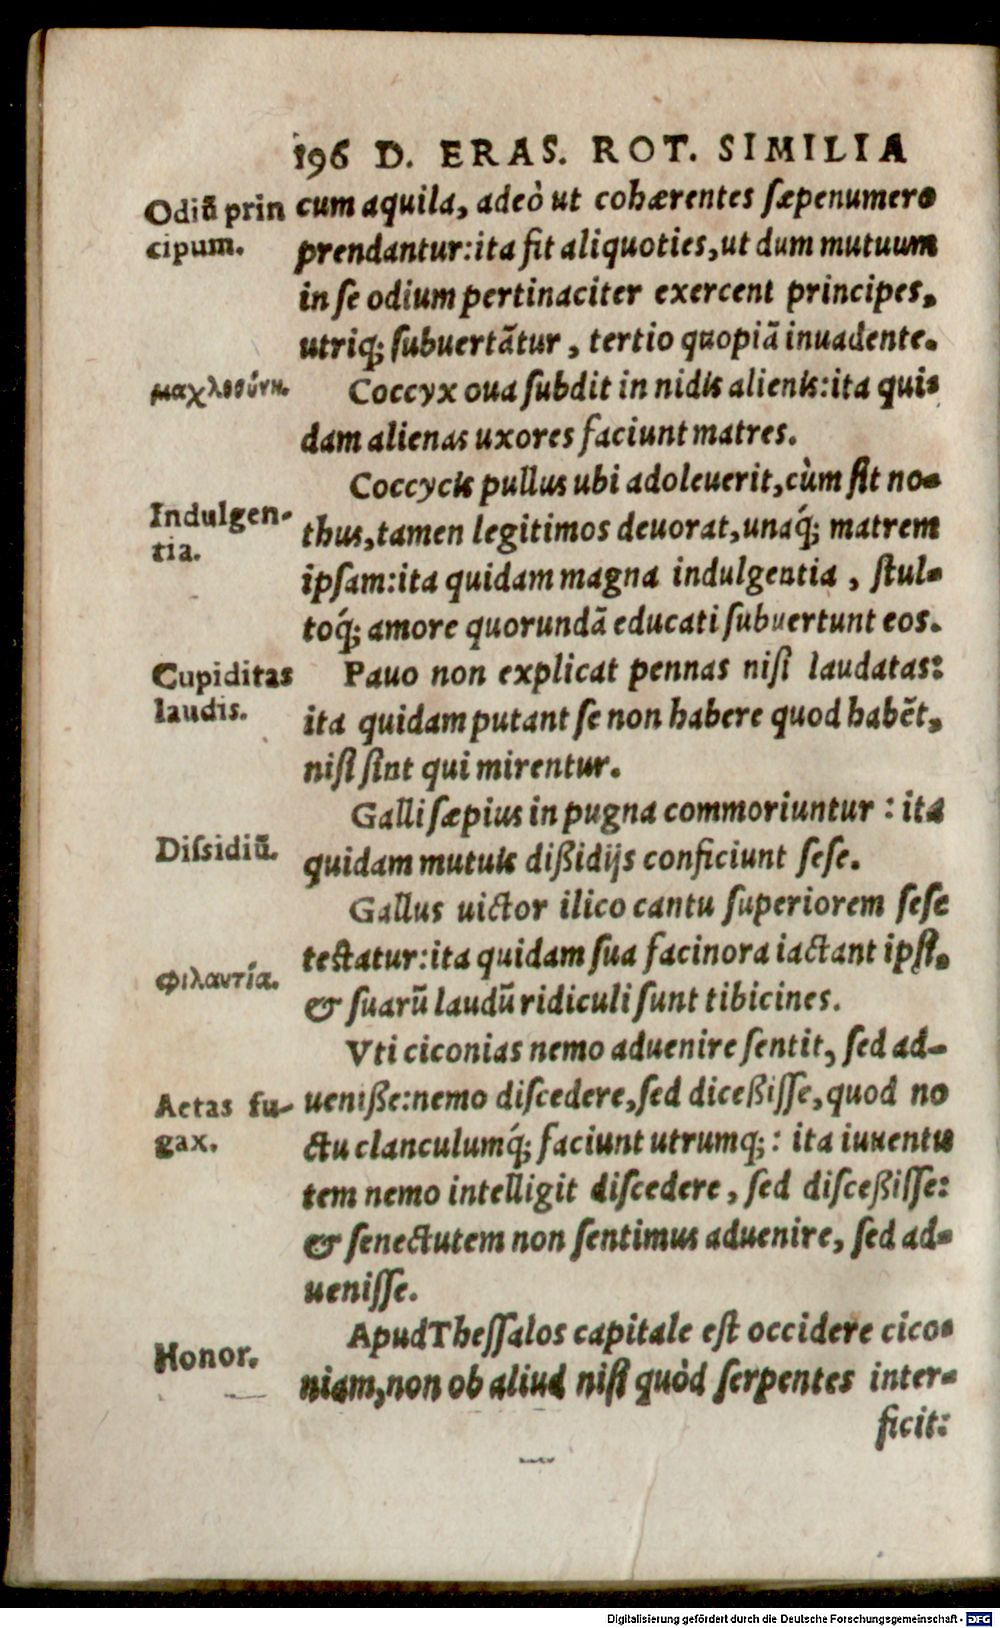 196 D. ERAS. ROT. SIMILIA
Odiū prin
cipum.
cum aquila, adeò ut cohærentes ſæpenumero
prendantur:ita fit aliquoties,ut dum mutuum
in ſe odium pertinaciter exercent principes,
utriq; ſubuertātur , tertio quopiā inuadente.
μαχλοσύνη.
Coccyx oua ſubdit in nidis alienis:ita qui-
dam alienas uxores faciunt matres.
Coccycis pullus ubi adoleuerit,cùm ſit no-
Indulgen-
tia.
thus,tamen legitimos deuorat,unaq́; matrem
ipſam:ita quidam magna indulgentia , ſtul-
toq́; amore quorundā educati ſubuertunt eos.
Cupiditas
laudis.
Pauo non explicat pennas niſi laudatas:
ita quidam putant ſe non habere quod habēt,
niſi ſint qui mirentur.
Galli ſæpius in pugna commoriuntur : ita
Diſsidiū.
quidam mutuis dißidijs conficiunt ſeſe.
Gallus uictor ilico cantu ſuperiorem ſeſe
teſtatur:ita quidam ſua facinora iactant ipſi,
φιλαυτία.
& ſuarū laudū ridiculi ſunt tibicines.
Vti ciconias nemo aduenire ſentit, ſed ad-
Aetas fu-
gax.
ueniße:nemo diſcedere,ſed diceßiſſe,quod no
ctu clanculumq́; faciunt utrumq; : ita iuuentu
tem nemo intelligit diſcedere , ſed diſceßiſſe:
& ſenectutem non ſentimus aduenire, ſed ad-
ueniſſe.
Apud Theſſalos capitale eſt occidere cico-
Honor.
niam,non ob aliud niſi quòd ſerpentes inter-
ficit:
Digitalisierung gefördert durch die Deutsche Forschungsgemeinschaft - DFG